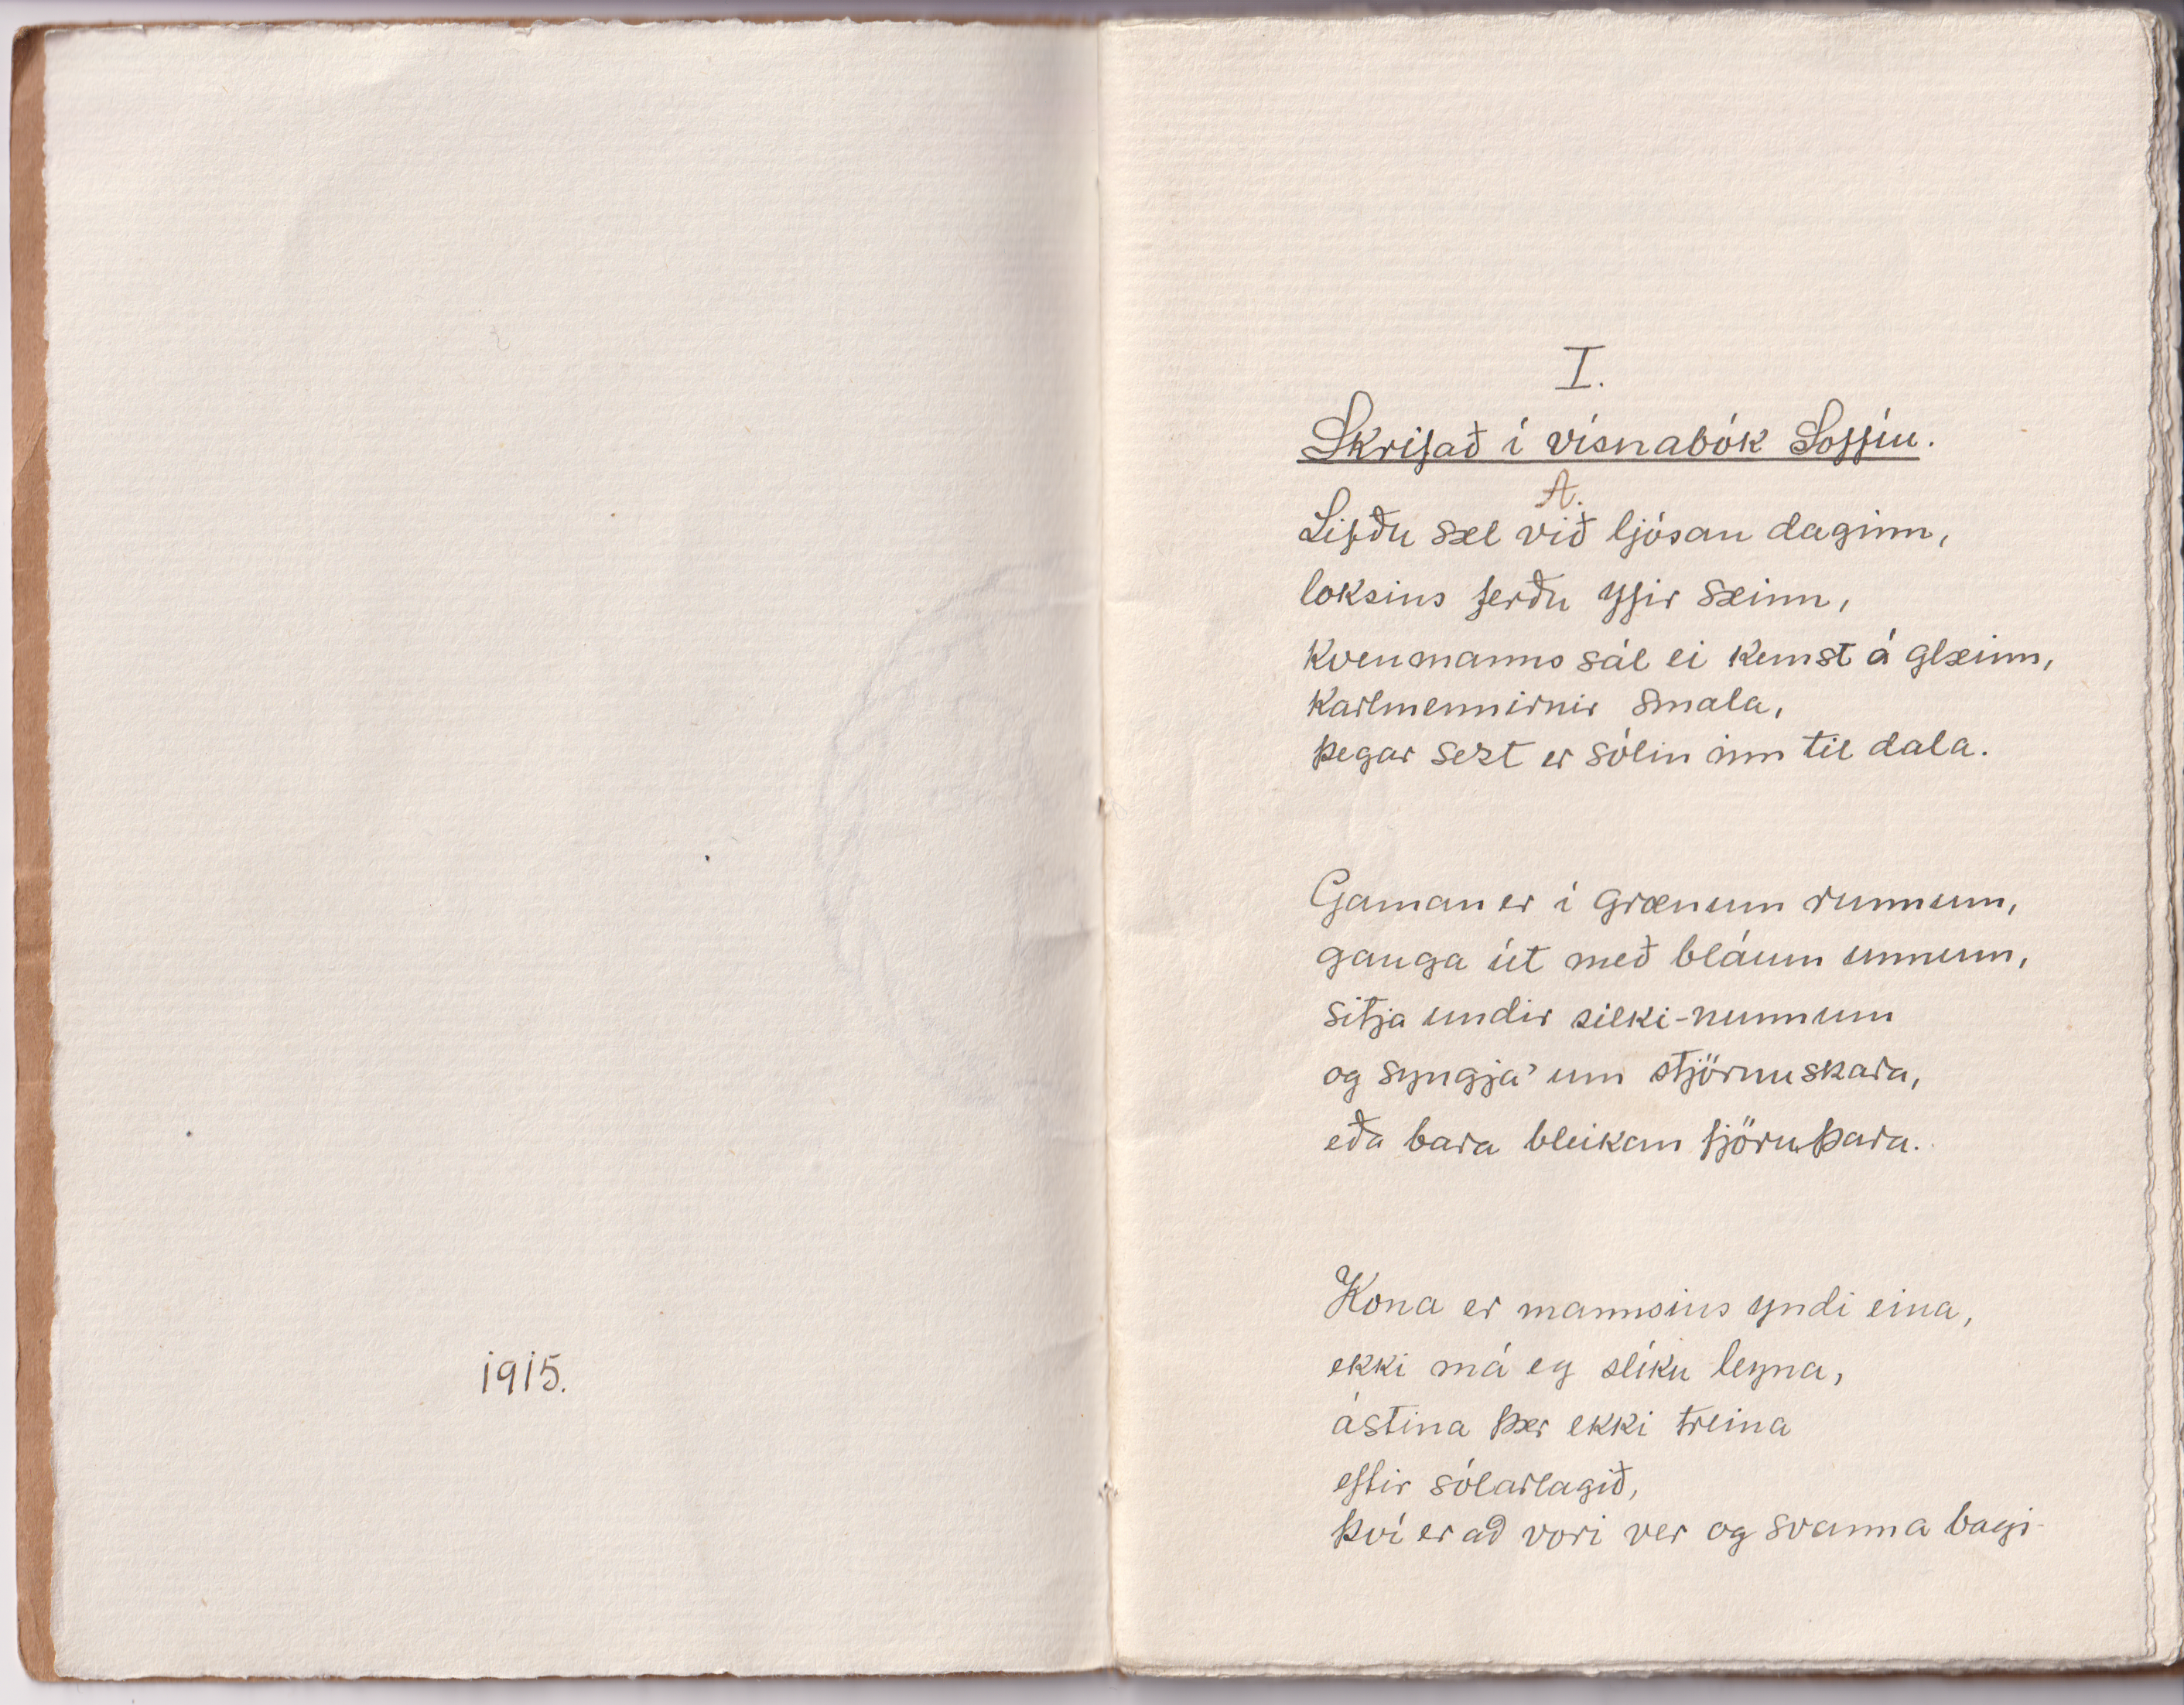 1915.
I.
Skrifað í vísnabók Soffíu.
A.
Lifðu sæl við ljósan daginn,
loksins ferðu yfir sæinn,
kvenmanns sál ei kemst á glæinn,
karlmennirnir smala,
þegar sezt er sólin inn til dala.
Gaman er í grænum runnum,
ganga út með bláum unnum,
sitja undir silki-nunnum
og syngja' um stjörnuskara,
eða bara bleikan fjöruþara.
Kona er mannsins yndi eina,
ekki má eg slíku leyna,
ástina þær ekki treina
eftir sólarlagið,
því er að vori ver og svanna bagi-